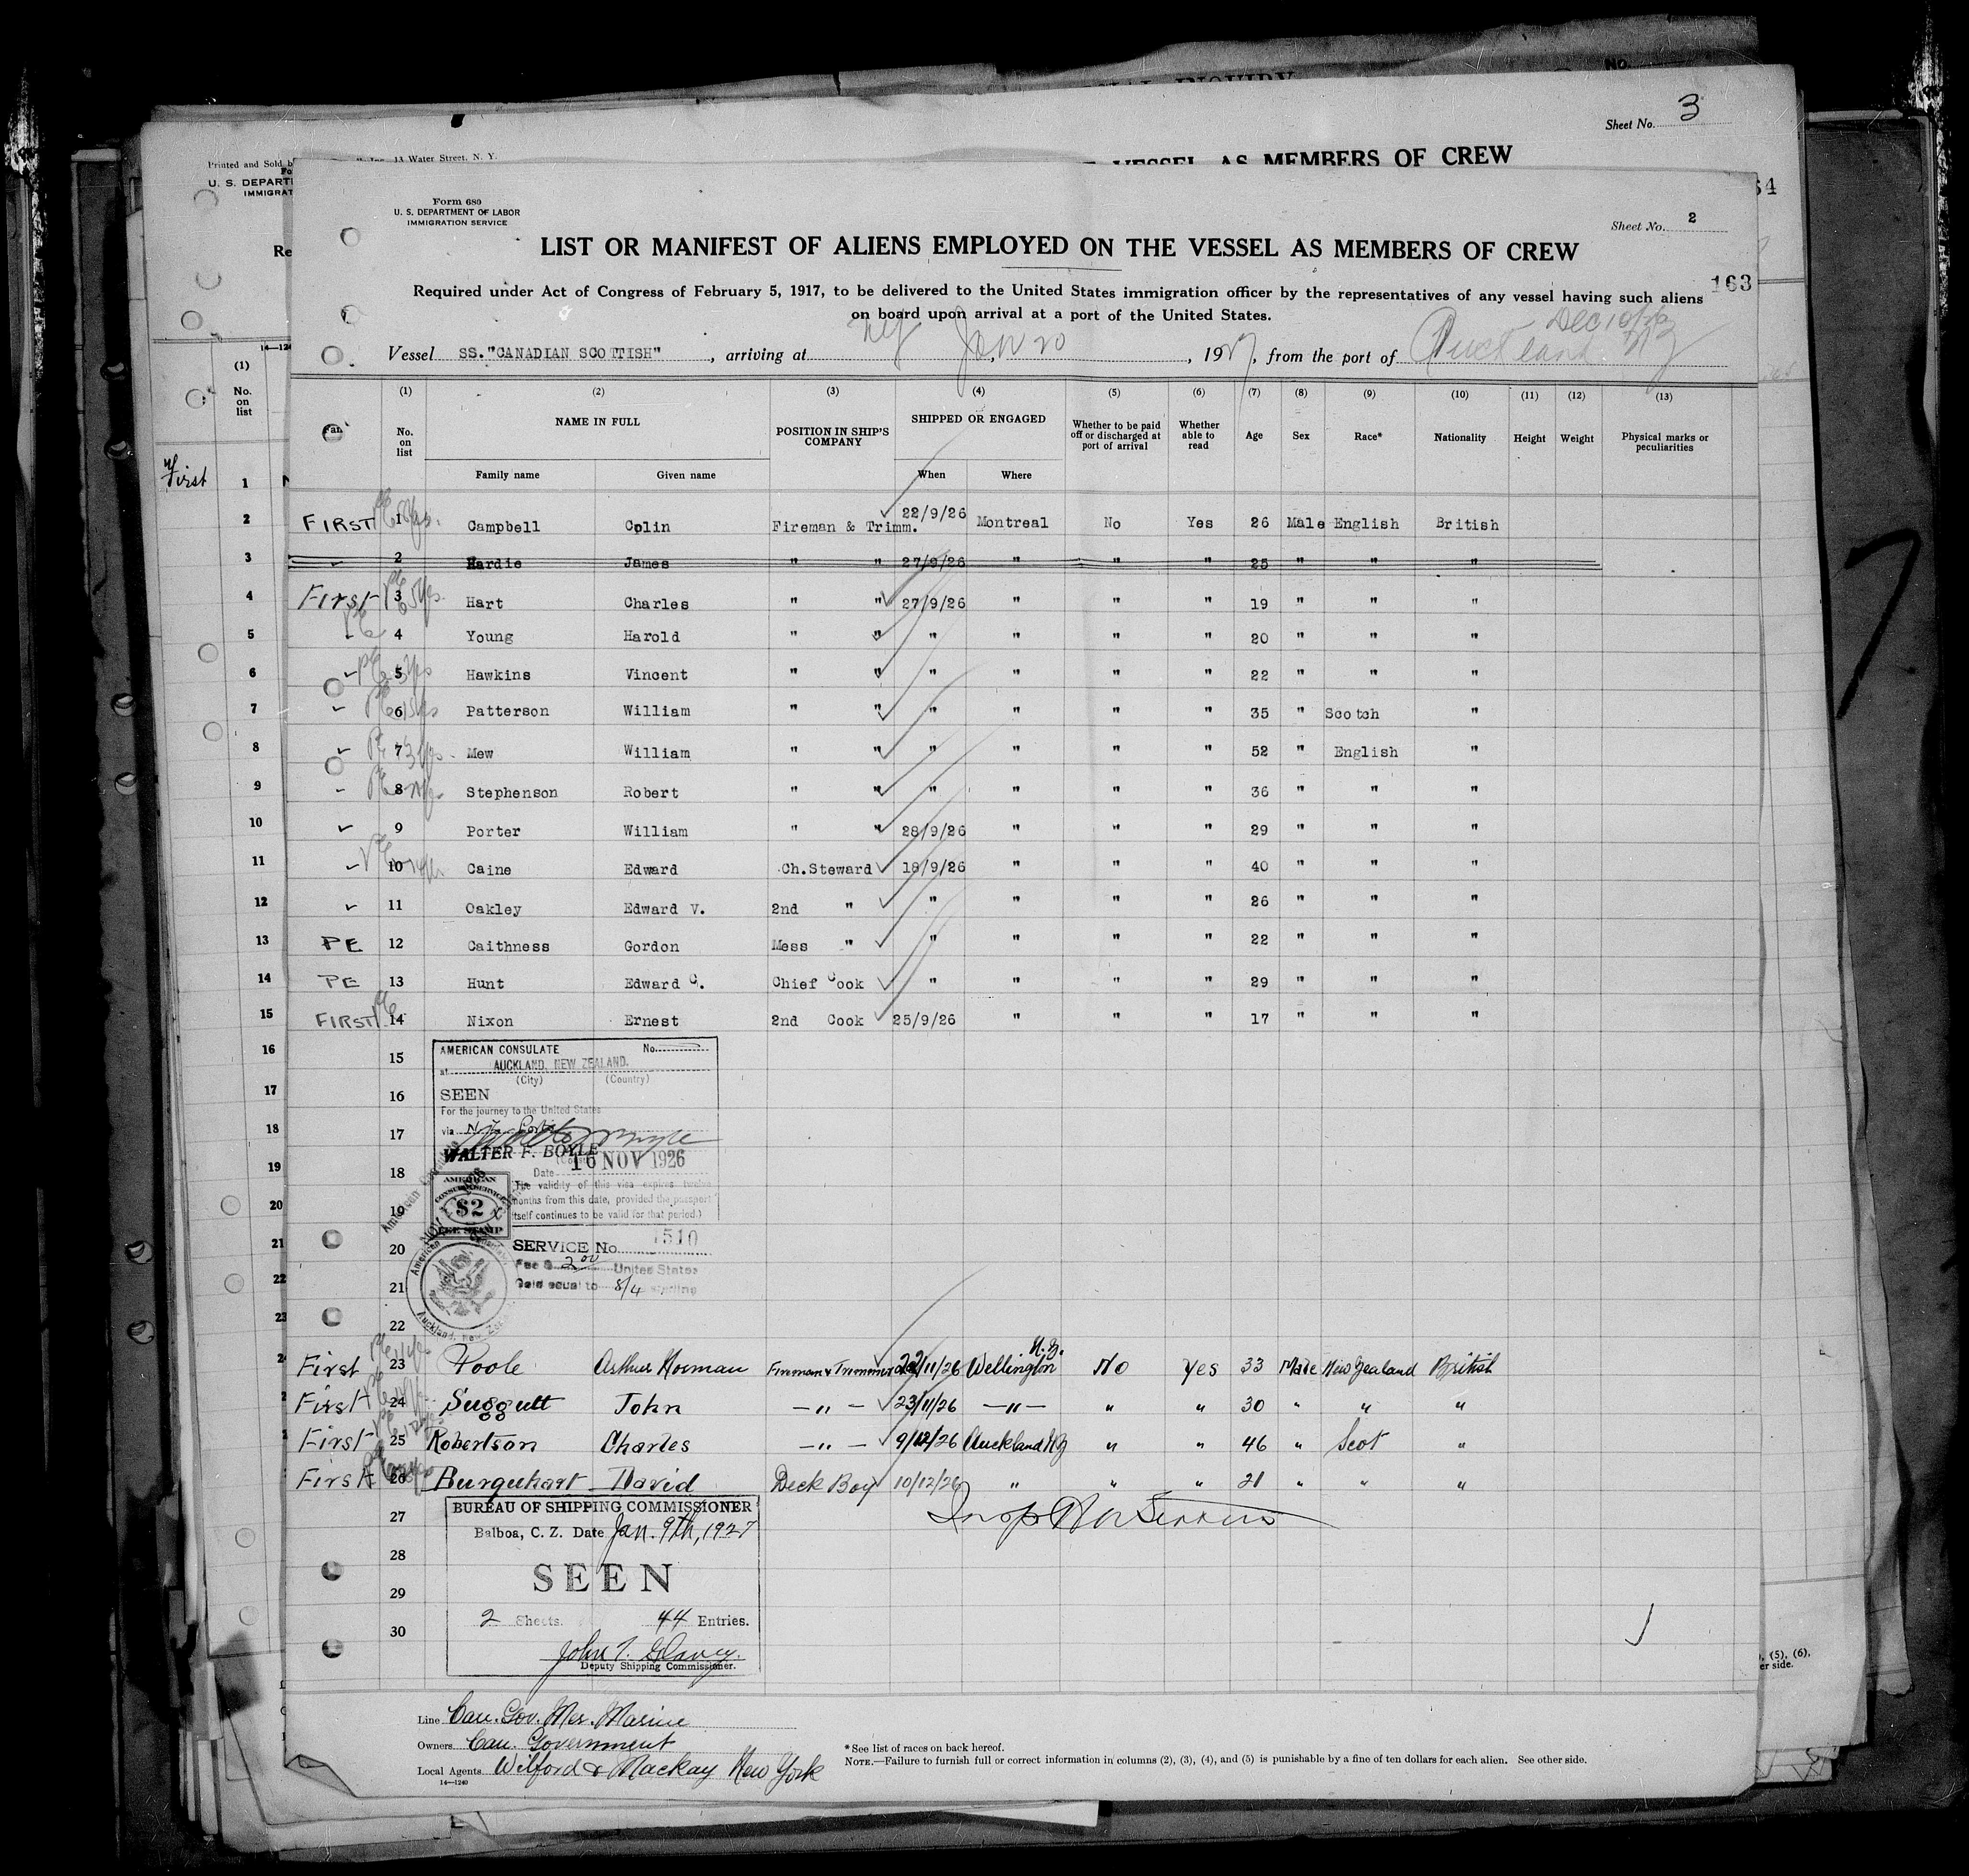 Sheet No. 3
Printed and Sold b
13 Water Street, N. Y.
U. S. DEPART
IMMIGRAT
VESSEL AS MEMBERS OF CREW
Form 680
U. S. DEPARTMENT OF LABOR
IMMIGRATION SERVICE
Sheet No. 2
LIST OR MANIFEST OF ALIENS EMPLOYED ON THE VESSEL AS MEMBERS OF CREW
163
Required under Act of Congress of February 5, 1917, to be delivered to the United States immigration officer by the representatives of any vessel having such aliens
on board upon arrival at a port of the United States.
Dec 10/26
Vessel SS."CANADIAN SCOTTISH", arriving at NY Jan 20, 1927, from the port of Auckland NZ
(1) (2) (3) (4) (5) (6) (7) (8) (9) (10) (11) (12) (13)
No. on list NAME IN FULL POSITION IN SHIP'S COMPANY SHIPPED OR ENGAGED Whether to be paid off or discharged at port of arrival Whether able to read Age Sex Race* Nationality Height Weight Physical marks or peculiarities
Family name Given name When Where
FIRST 1 Campbell Colin Fireman & Trimm. 22/9/26 Montreal No Yes 26 Male English British
2 Hardie James " " 27/9/26 " " " 25 " " "
First 3 Hart Charles " " 27/9/26 " " " 19 " " "
4 Young Harold " " " " " " 20 " " "
5 Hawkins Vincent " " " " " " 22 " " "
6 Patterson William " " " " " " 35 " Scotch "
7 Mew William " " " " " " 52 " English "
8 Stephenson Robert " " " " " " 36 " " "
9 Porter William " " 28/9/26 " " " 29 " " "
10 Caine Edward Ch.Steward 18/9/26 " " " 40 " " "
11 Oakley Edward V. 2nd " " " " " 26 " " "
PE 12 Caithness Gordon Mess " " " " " 22 " " "
PE 13 Hunt Edward C. Chief Cook " " " " 29 " " "
FIRST 14 Nixon Ernest 2nd Cook 25/9/26 " " " 17 " " "
15
AMERICAN CONSULATE No.
at AUCKLAND, NEW ZEALAND.
(City) (Country)
16 SEEN
For the journey to the United States
17 via
WALTER F. BOYLE
16 NOV 1926
18 Date
The validity of this visa expires twelve
months from this date, provided the passport
itself continues to be valid for that period.)
19 AMERICAN CONSULAR SERVICE $2 FEE STAMP
20 SERVICE No. 1510
Fee $ 2 00 United States
21 Gold equal to 8/4 sterling
American Consulate Auckland, New Zealand
22
First 23 Poole Arthur Norman Fireman & Trimmer 22/11/26 Wellington N.Z. No Yes 33 Male New Zealand British
First 24 Suggutt John — " — 23/11/26 — " — " " 30 " " "
First 25 Robertson Charles — " — 9/12/26 Auckland NZ " " 46 " Scot "
First 26 Burquhart David Deck Boy 10/12/26 " " " 21 " " "
27
BUREAU OF SHIPPING COMMISSIONER
Balboa, C. Z. Date Jan. 9th, 1927
28
SEEN
29
2 Sheets. 44 Entries.
30
Deputy Shipping Commissioner.
Line Can. Gov. Mer. Marine
Owners Can. Government
Local Agents Wilford & Mackay New York
14—1240
*See list of races on back hereof.
NOTE.—Failure to furnish full or correct information in columns (2), (3), (4), and (5) is punishable by a fine of ten dollars for each alien. See other side.
(1)
No. on list
First 1
2
3
4
5
6
7
8
9
10
11
12
13
14
15
16
17
18
19
20
21
22
23
, (5), (6),
er side.